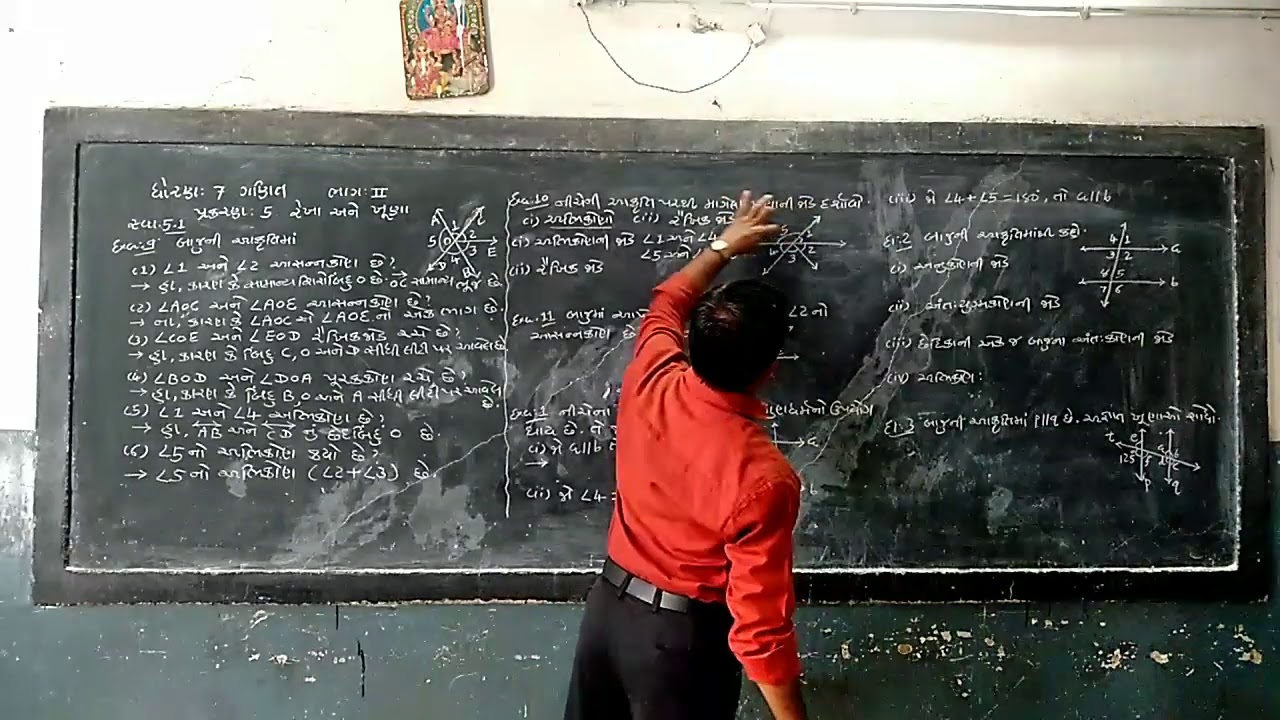 ધોરણ: 7 ગણિત ભાગ: II
પ્રકરણ: 5 રેખા અને ખૂણા
સ્વા: 5.1
બાજુની આકૃતિમાં
(1) ∠1 અને ∠2 આસન્નકોણ છે?
→ હા, કારણ કે સામાન્ય શિરોબિંદુ O છે. OC સામાન્ય ભૂજ છે.
(2) ∠AOC અને ∠AOE આસન્નકોણ છે?
→ ના, કારણ કે ∠AOC એ ∠AOE નો એક ભાગ છે.
(3) ∠COE અને ∠EOD રૈખિકજોડ રચે છે?
→ હા, કારણ કે બિંદુ C, O અને D સીધી લીટી પર આવેલ છે
(4) ∠BOD અને ∠DOA પૂરકકોણ રચે છે?
→ હા, કારણ કે બિંદુ B, O અને A સીધી લીટી પર આવેલ છે.
(5) ∠1 અને ∠4 અભિકોણ છે?
→ હા, AB અને CD નું છેદબિંદુ O છે.
(6) ∠5 નો અભિકોણ કયો છે?
→ ∠5 નો અભિકોણ (∠2+∠3) છે.
નીચેની આકૃતિ પરથી જોડ દર્શાવો.
(i) અભિકોણો (ii) રૈખિક જોડ
(i) અભિકોણની જોડ ∠1 અને ∠4
∠5 અને
(ii) રૈખિક જોડ
11 બાજુમાં ∠2 નો
આસન્નકોણ છે
1 નીચેના ગુણધર્મનો ઉપયોગ
થાય છે. તે
(i) જો a||b
→
(ii) જો ∠4 =
(iii) જો ∠4+∠5=180, તો a||b
દા: 2 બાજુની આકૃતિમાંથી કહો.
(i) અનુકોણની જોડ
(ii) અંત:યુગ્મકોણની જોડ
(iii) છેદિકાની એક જ બાજુના અંત:કોણની જોડ
(iv) અભિકોણ:
દા: 3 બાજુની આકૃતિમાં p||q છે. અજ્ઞાત ખૂણાઓ શોધો.